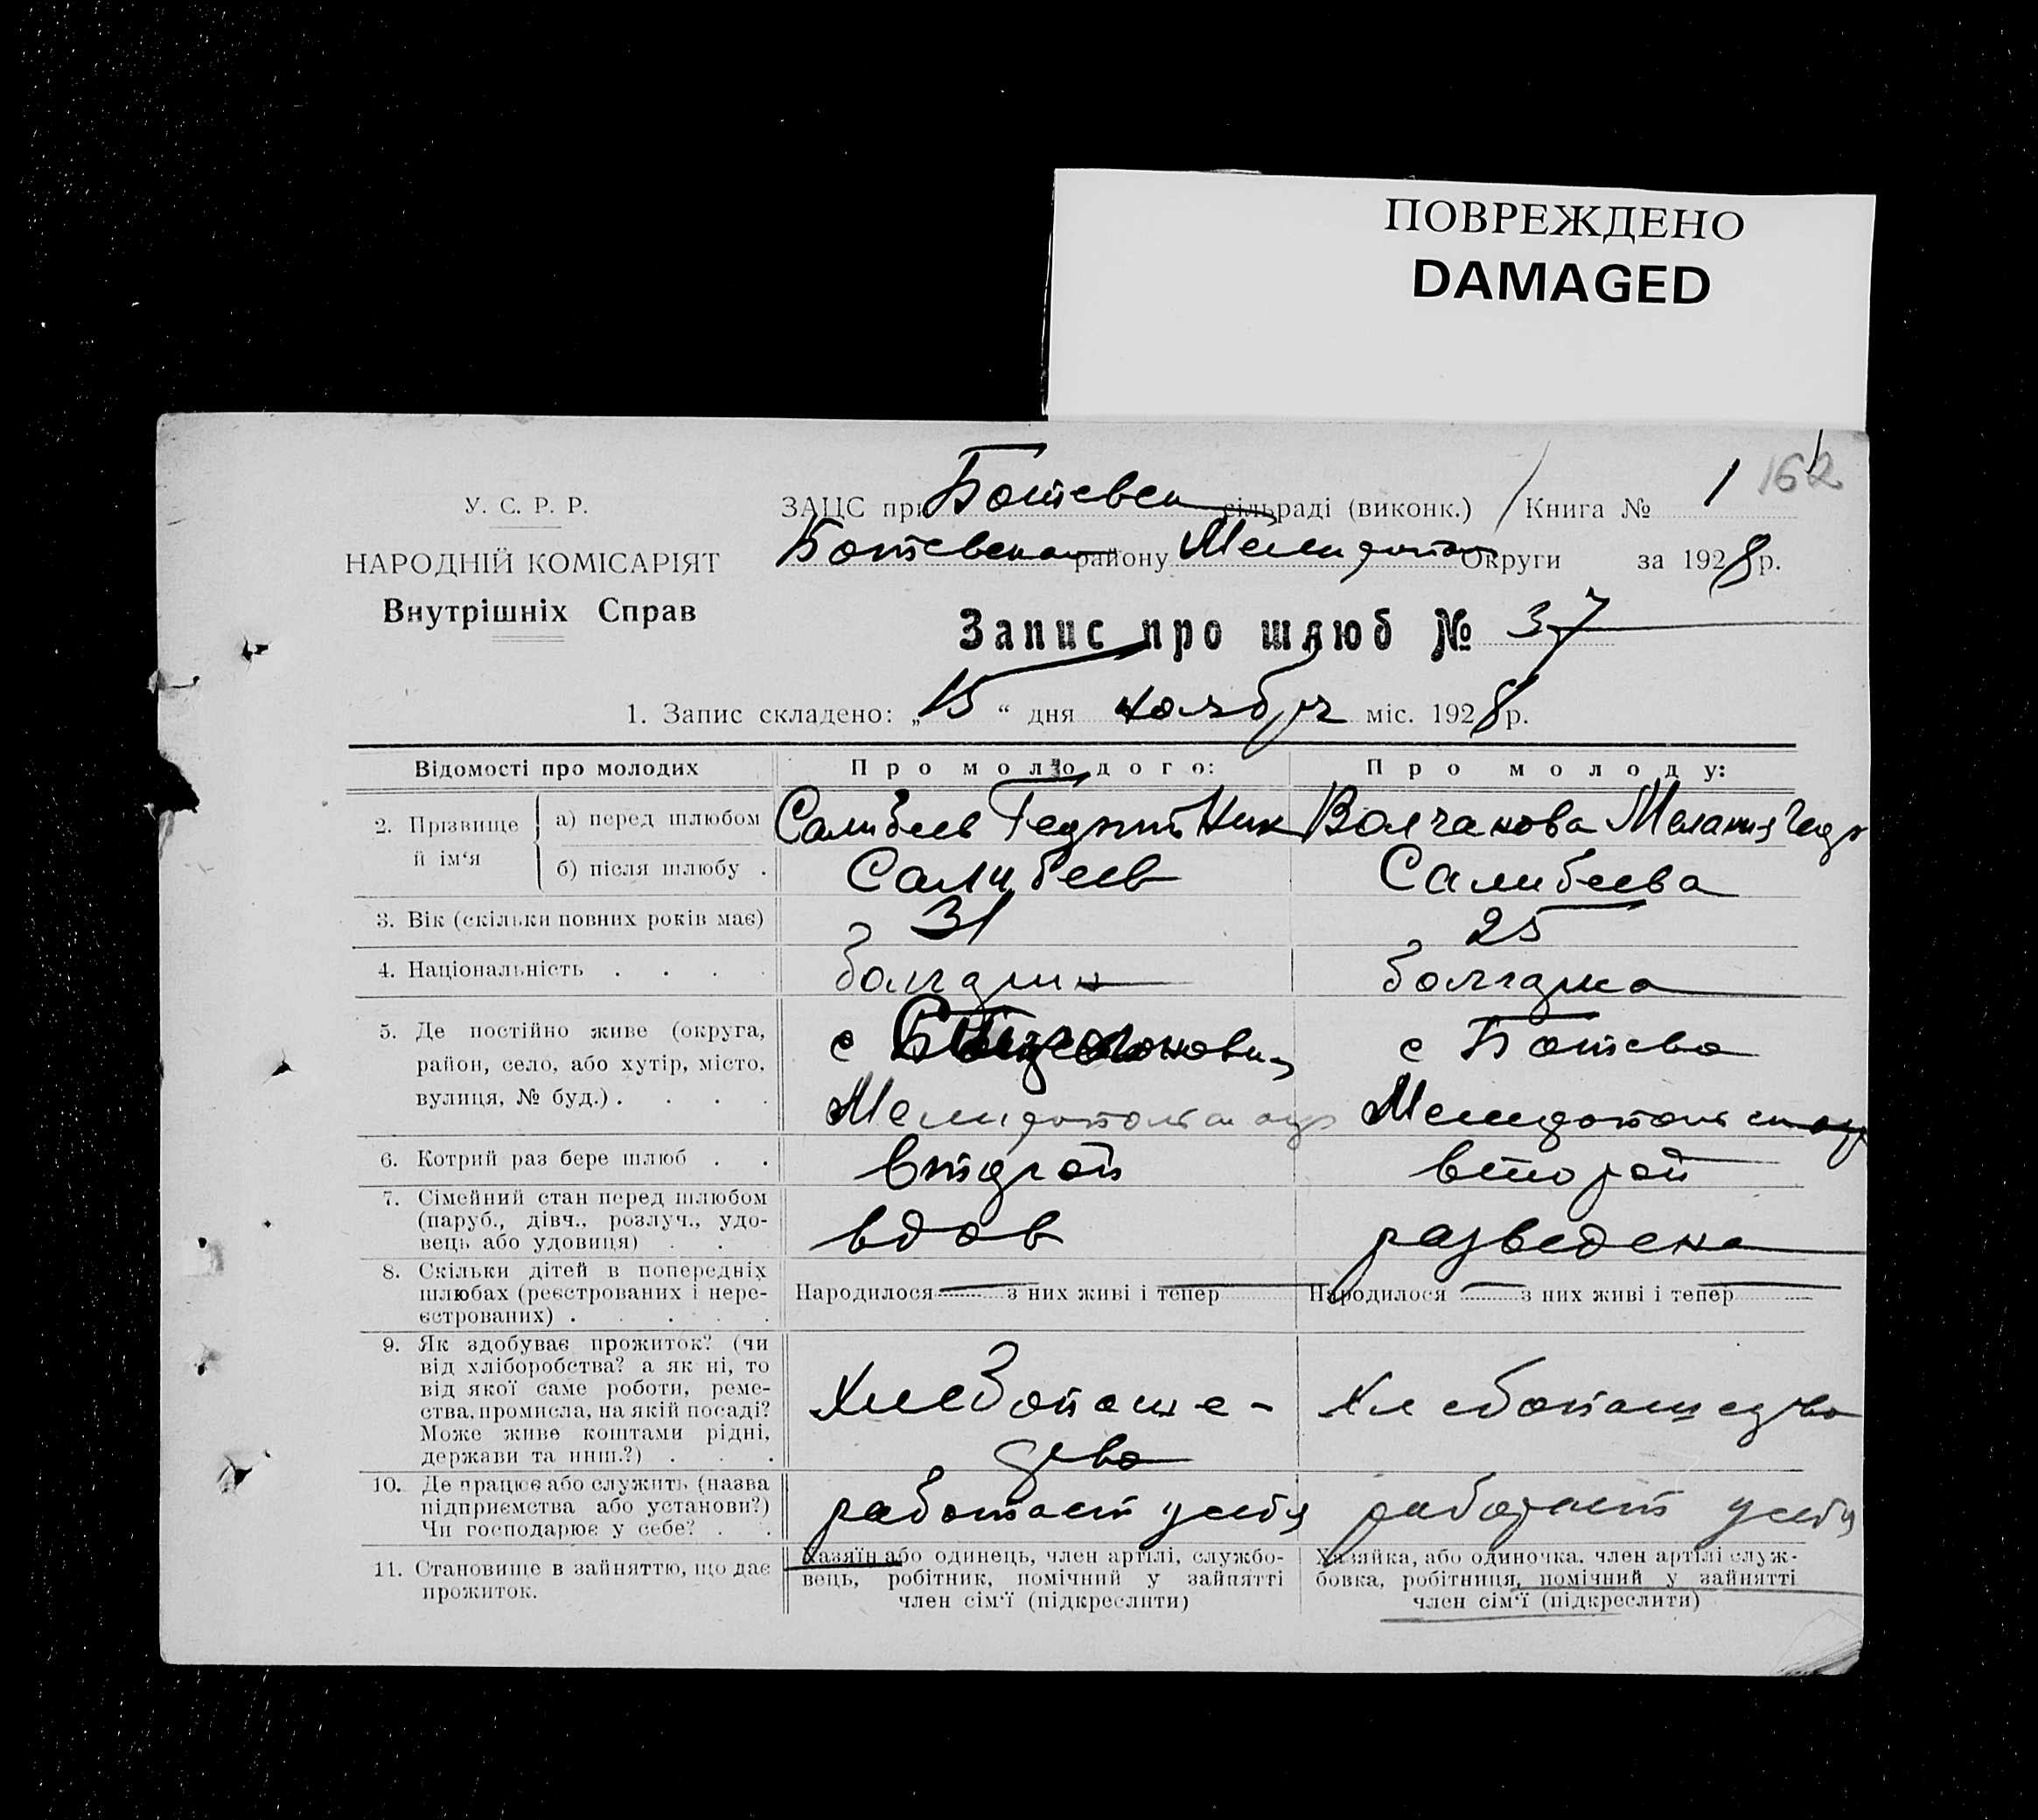 ПОВРЕЖДЕНО
DAMAGED
162
У. С. Р. Р.
НАРОДНІЙ КОМІСАРІЯТ
Внутрішніх Справ
ЗАЦС при Ботевск сільраді (виконк.) Книга № 1
Ботевском району Мелитопол Округи за 1928 р.
Запис про шлюб № 37
1. Запис складено: „15“ дня ноября міс. 1928 р.
Відомості про молодих Про молодого: Про молоду:
2. Прізвище й ім‘я а) перед шлюбом Салибеев Георгий Ник Волчанова Мелания
б) після шлюбу . Салибеев Салибеева
3. Вік (скільки повних років має) 31 25
4. Національність . . . . болгарин болгарка
5. Де постійно живе (округа, с с Ботево
район, село, або хутір, місто,
вулиця, № буд.) . . . . Мелитопольск окр Мелитопольск окр
6. Котрий раз бере шлюб . . второй второй
7. Сімейний стан перед шлюбом
(паруб., дівч., розлуч., удо-
вець або удовиця) . . . вдов разведена
8. Скільки дітей в попередніх
шлюбах (реєстрованих і нере- Народилося — з них живі і тепер — Народилося — з них живі і тепер —
єстрованих) . . . . .
9. Як здобуває прожиток? (чи
від хліборобства? а як ні, то
від якої саме роботи, реме-
ства, промисла, на якій посаді? Хлебопаше- Хлебопашество
Може живе коштами рідні,
держави та инш.?) . . . ство
10. Де працює або служить (назва
підприємства або установи?) работает у себя работает у себя
Чи господарює у себе? . .
11. Становище в зайняттю, що дає Хазяїн або одинець, член артілі, службо- Хазяйка, або одиночка, член артілі служ-
прожиток. вець, робітник, помічний у зайнятті бовка, робітниця, помічний у зайнятті
член сім‘ї (підкреслити) член сім‘ї (підкреслити)